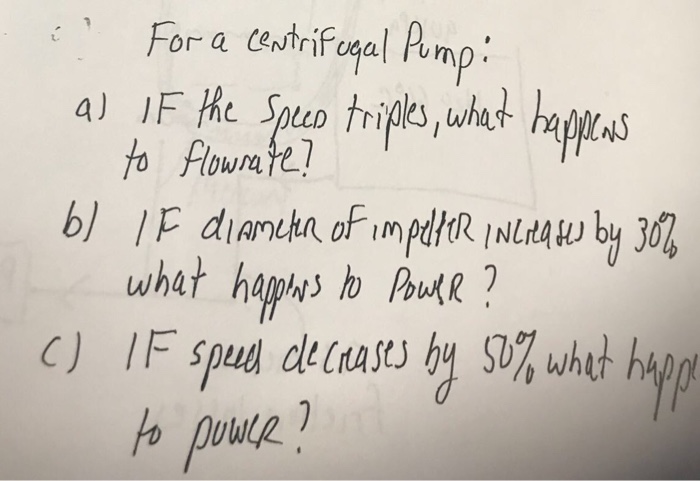 For a centrifugal Pump:
a) IF the Speed triples, what happens
to flowrate?
b) IF diameter of impeller increases by 30%
what happens to Power?
c) IF speed decreases by 50% what happe
to power?